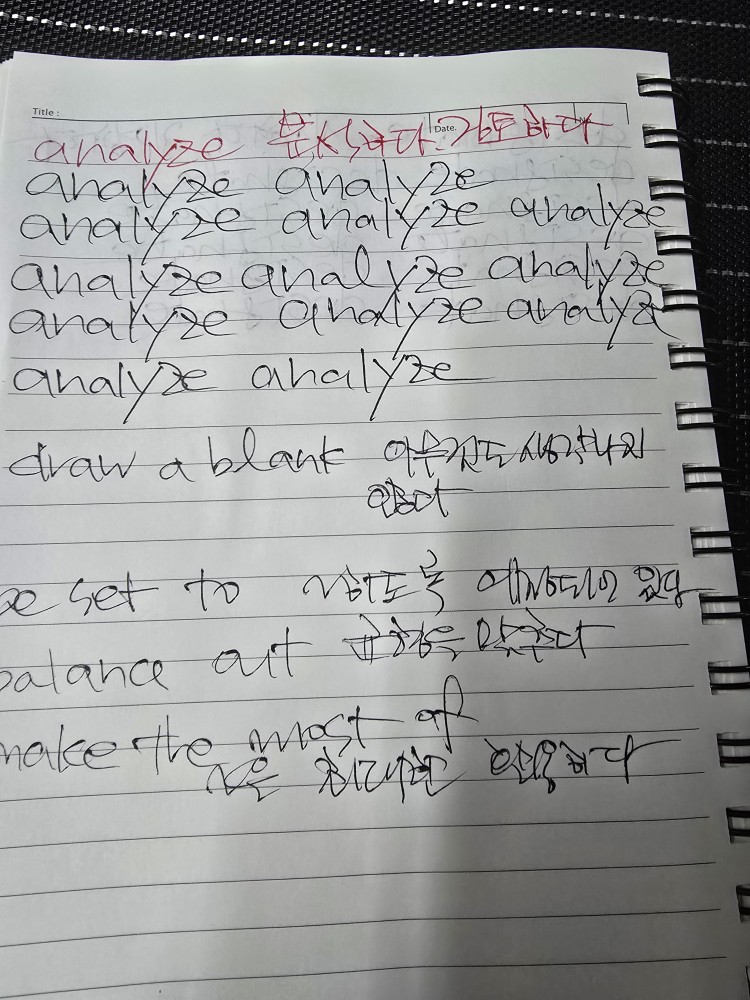 Title :
Date.
analyze 분석하다. 검토하다
analyze analyze
analyze analyze analyze
analyze analyze analyze
analyze analyze analyze
analyze analyze
draw a blank 아무것도 생각나지
않다
be set to ~하도록 예정되어 있다
balance out 균형을 맞추다
make the most of
~을 최대한 활용하다